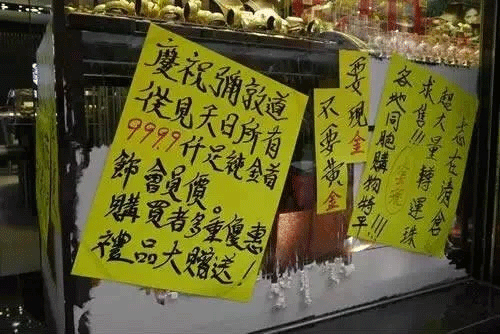 慶祝彌敦道
從見天日所有
9999仟足純金首
飾會員價。
購買者多重優惠
禮品大贈送！
要現金
不要黃金
志在清倉
超大量轉運珠
求售!!!
各地同胞購物特平!!!